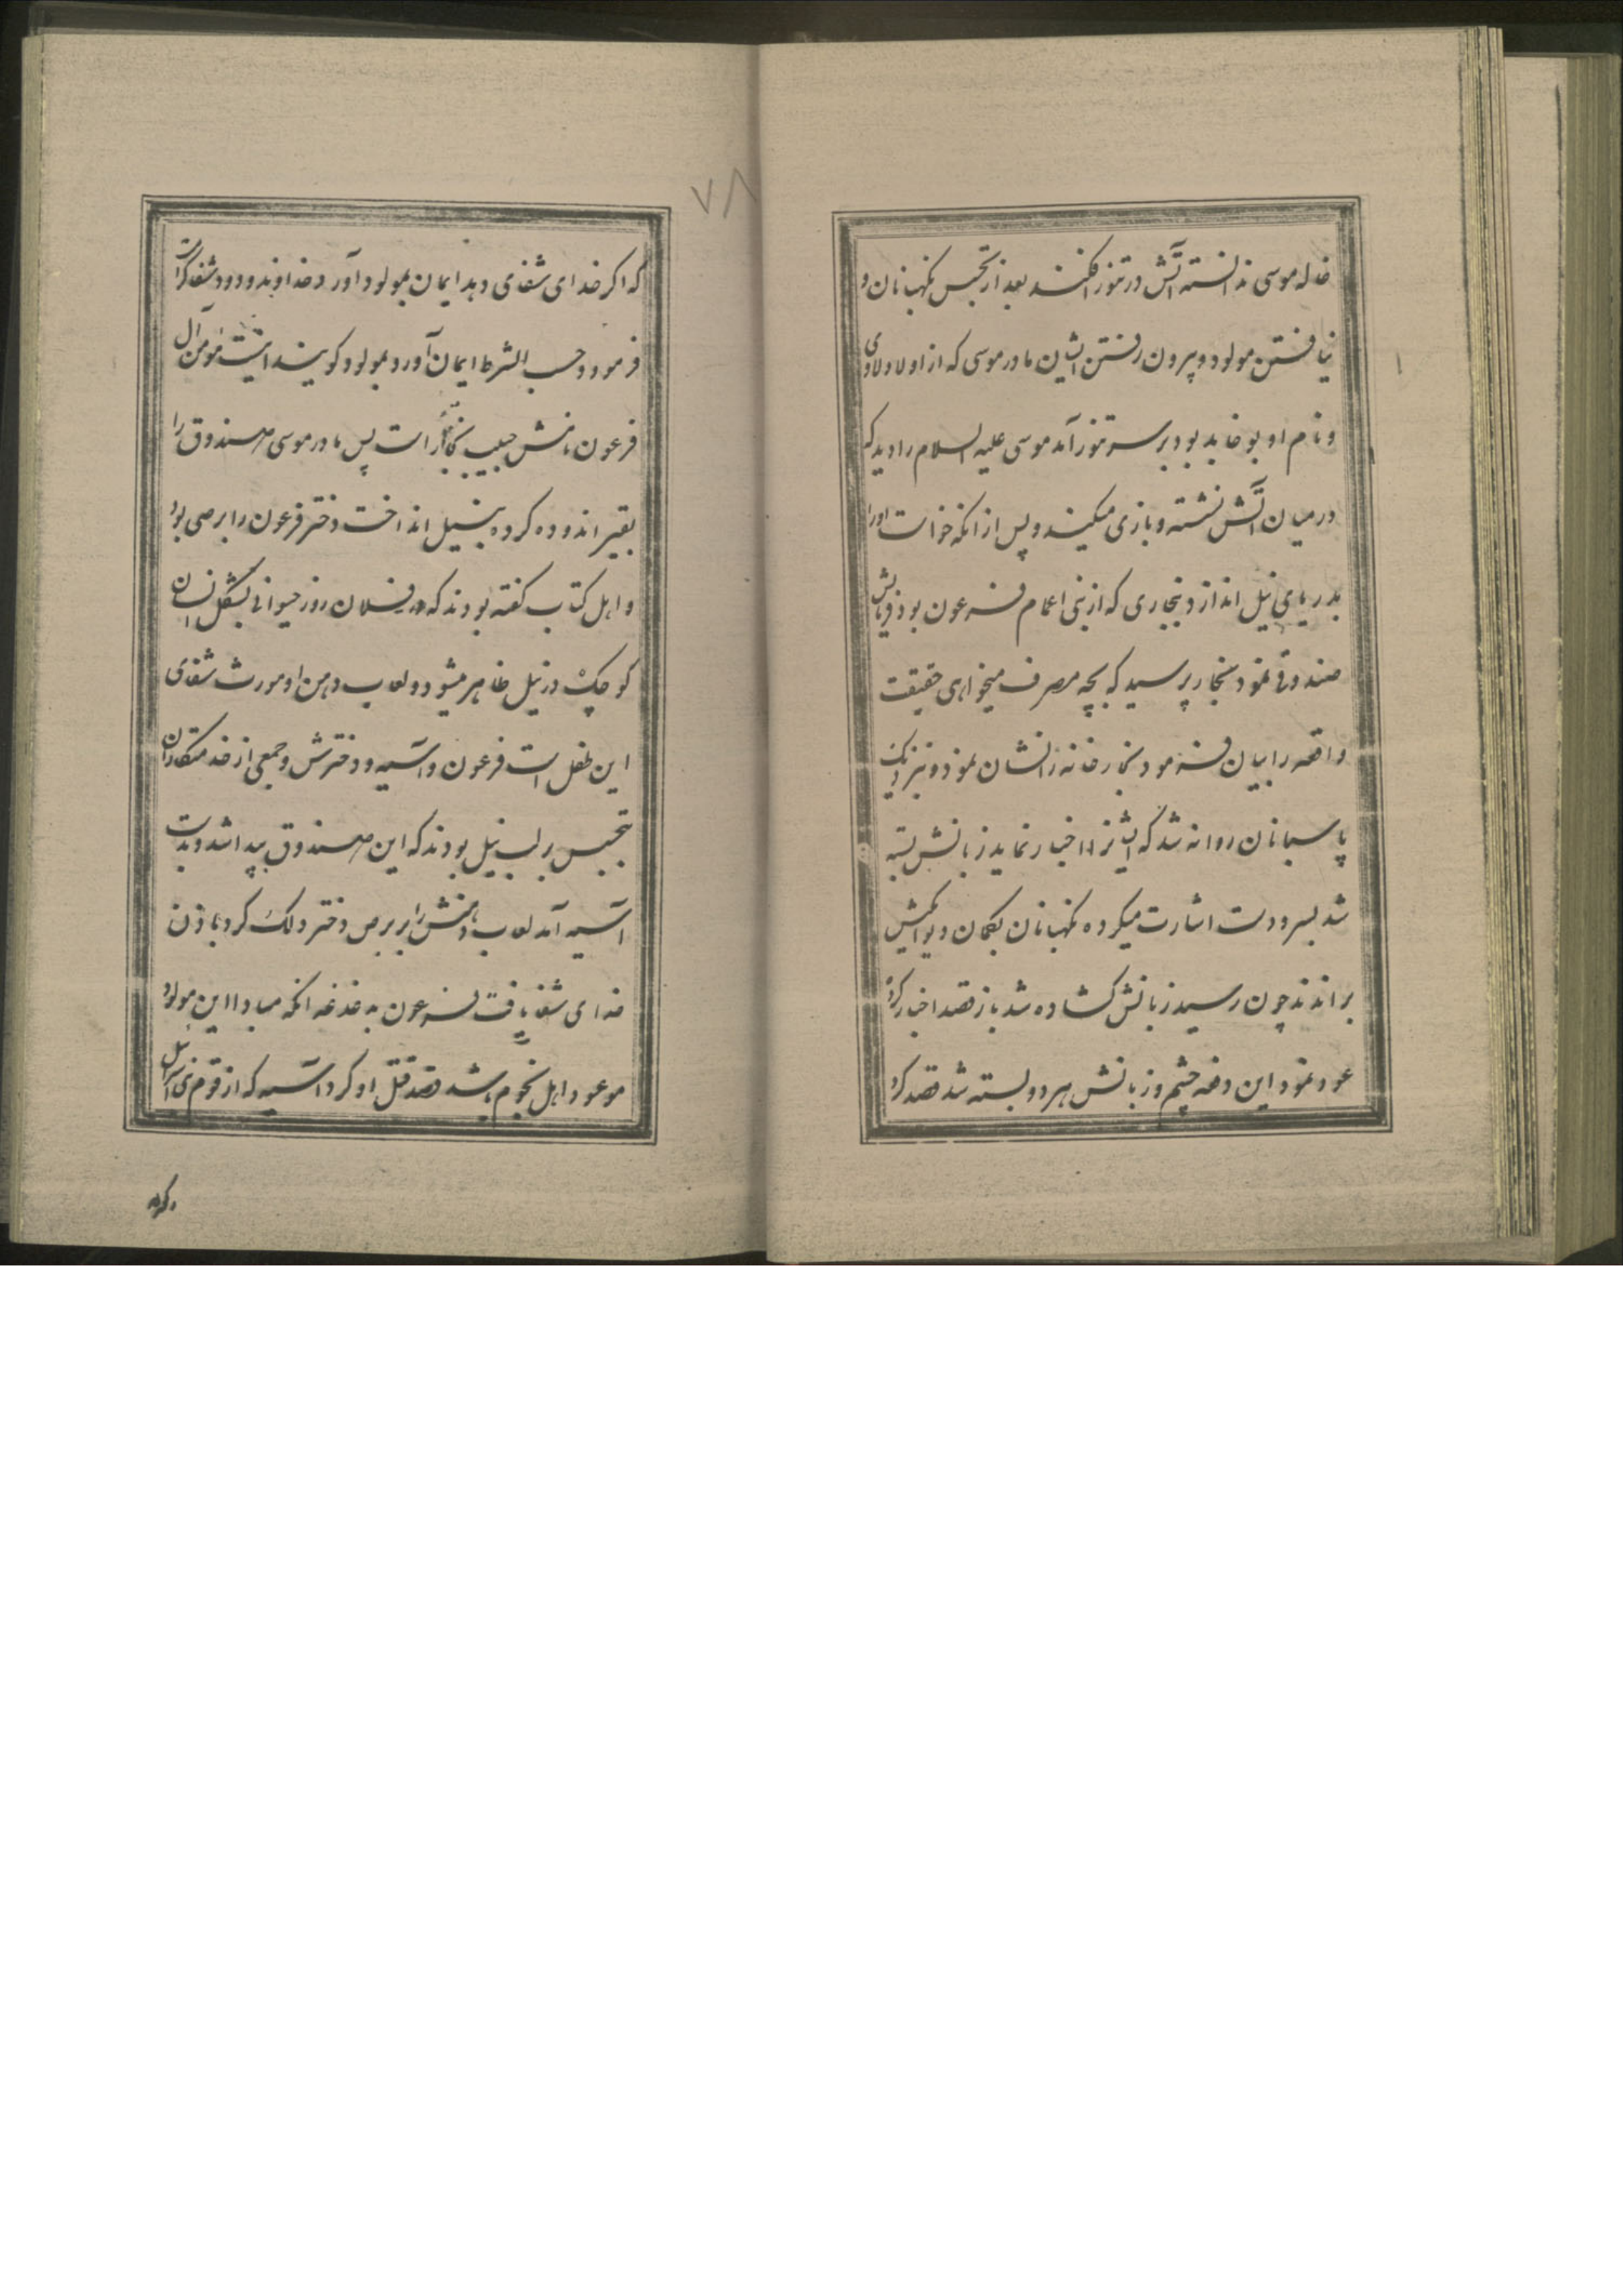 خاله موسی ندانسته آتش در تنور افکنند بعد از تجسس نکهبانان و
نیافتن مولود و بیرون رفتن ایشان مادر موسی که از اولاد لاوی
و نام او بوخابد بود بر سر تنور آمد موسی علیه السلام را دید که
در میان آتش نشسته و بازی میکند و پس از انکه خواست او را
بدریای نیل اندازد بنجاری که از بنی اعمام فرعون بود فرمایش
صندوقی نمود نجار پرسید که بچه مصرف میخواهی حقیقت
واقعه را بیان فرمود نجار خانه را نشان نمود و بنزدیک
پاسبانان روانه شد که ایشانرا اخبار نماید زبانش بسته
شد بسر و دست اشارت میکرد نکهبانان بکمان دیوانکیش
براندند چون رسید زبانش کشاده شد باز قصد اخبار کرده
عود نمود این دفعه چشم و زبانش هر دو بسته شد قصد کرد
۷۸
که اکر خدای شفای دهد ایمان بمولود آورد خداوند ودود شفا کرامت
فرمود و حسب الشرط ایمان آورد بمولود کویند اینست مؤمن آل
فرعون نامش حبیب نجار است پس مادر موسی صندوق را
بقیر اندوده کرده بنیل انداخت دختر فرعون را برصی بود
و اهل کتاب کفته بودند که در فلان روز حیوانی بشکل انسان
کوچک در نیل ظاهر میشود و لعاب دهن او مورث شفای
این طفل است فرعون و آسیه و دخترش و جمعی از خدمتکاران
بتجسس بر لب نیل بودند که این صندوق پیدا شد و بدست
آسیه آمد لعاب دهنش را بر برص دختر دلک کرد باذن
خدای شفا یافت فرعون بدغدغه انکه مبادا این مولود
موعود اهل نجوم باشد قصد قتل او کرد آسیه که از قوم بنی اسرائیل